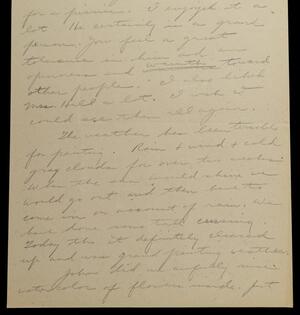 for a picnic. I enjoyed it a
lot. He certainly is a grand
person. You feel a great
tolerance in him and an
openness and warmth toward
other people. I also liked
Mrs. Held a lot. I wish I
could see them all again.
The weather has been terrible
for painting. Rain & wind & cold
gray clouds for over two weeks.
When the sun would shine we
would go out and then have to
come in on account of rain. We
have done some
Today tho it definitely cleared
up and was grand painting weather.
John did an awfully nice
watercolor of flowers inside. Just